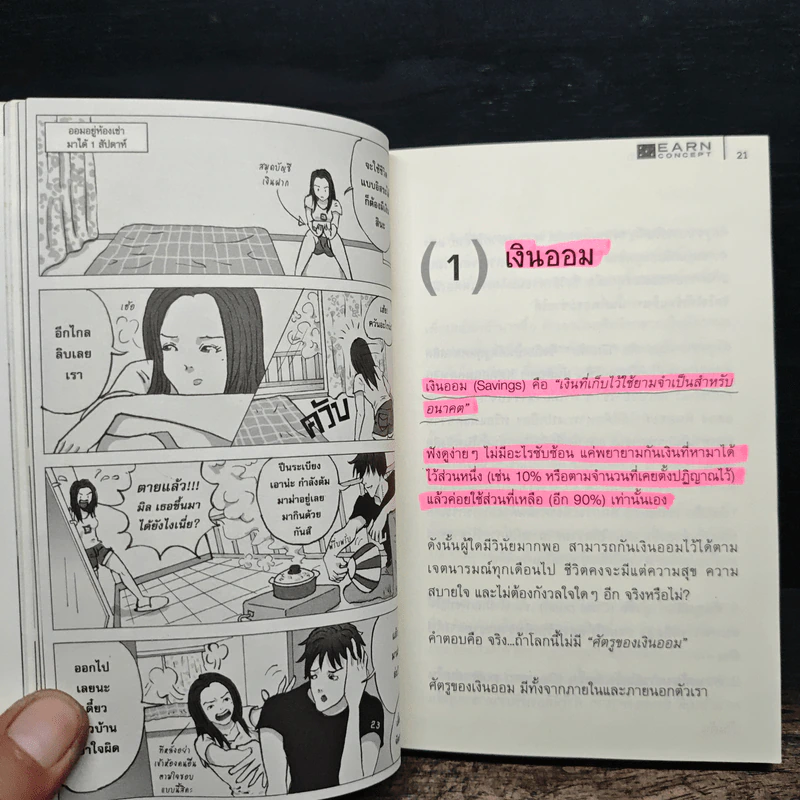 ออมอยู่ห้องเช่า
มาได้ 1 สัปดาห์
สมุดบัญชี
เงินฝาก
จะใช้ชีวิต
แบบอิสระ
ก็ต้อง
อีกไกล
ลิบเลย
เรา
เฮ้อ
ควับ
ตายแล้ว!!!
มิล เธอขึ้นมา
ได้ยังไงเนี่ย?
ปีนระเบียง
เอาน่ะ กำลังต้ม
มาม่าอยู่เลย
มากินด้วย
กันสิ
ออกไป
เลยนะ
เดี๋ยว
บ้าน
ใจผิด
ทีหลังอย่า
เข้าห้องคนอื่น
ตามใจชอบ
แบบนี้สิคะ
23
EARN
CONCEPT
21
(1) เงินออม
เงินออม (Savings) คือ “เงินที่เก็บไว้ใช้ยามจำเป็นสำหรับ
อนาคต”
ฟังดูง่ายๆ ไม่มีอะไรซับซ้อน แค่พยายามกันเงินที่หามาได้
ไว้ส่วนหนึ่ง (เช่น 10% หรือตามจำนวนที่เคยตั้งปฏิญาณไว้)
แล้วค่อยใช้ส่วนที่เหลือ (อีก 90%) เท่านั้นเอง
ดังนั้นผู้ใดมีวินัยมากพอ สามารถกันเงินออมไว้ได้ตาม
เจตนารมณ์ทุกเดือนไป ชีวิตคงจะมีแต่ความสุข ความ
สบายใจ และไม่ต้องกังวลใจใดๆ อีก จริงหรือไม่?
คำตอบคือ จริง...ถ้าโลกนี้ไม่มี “ศัตรูของเงินออม”
ศัตรูของเงินออม มีทั้งจากภายในและภายนอกตัวเรา